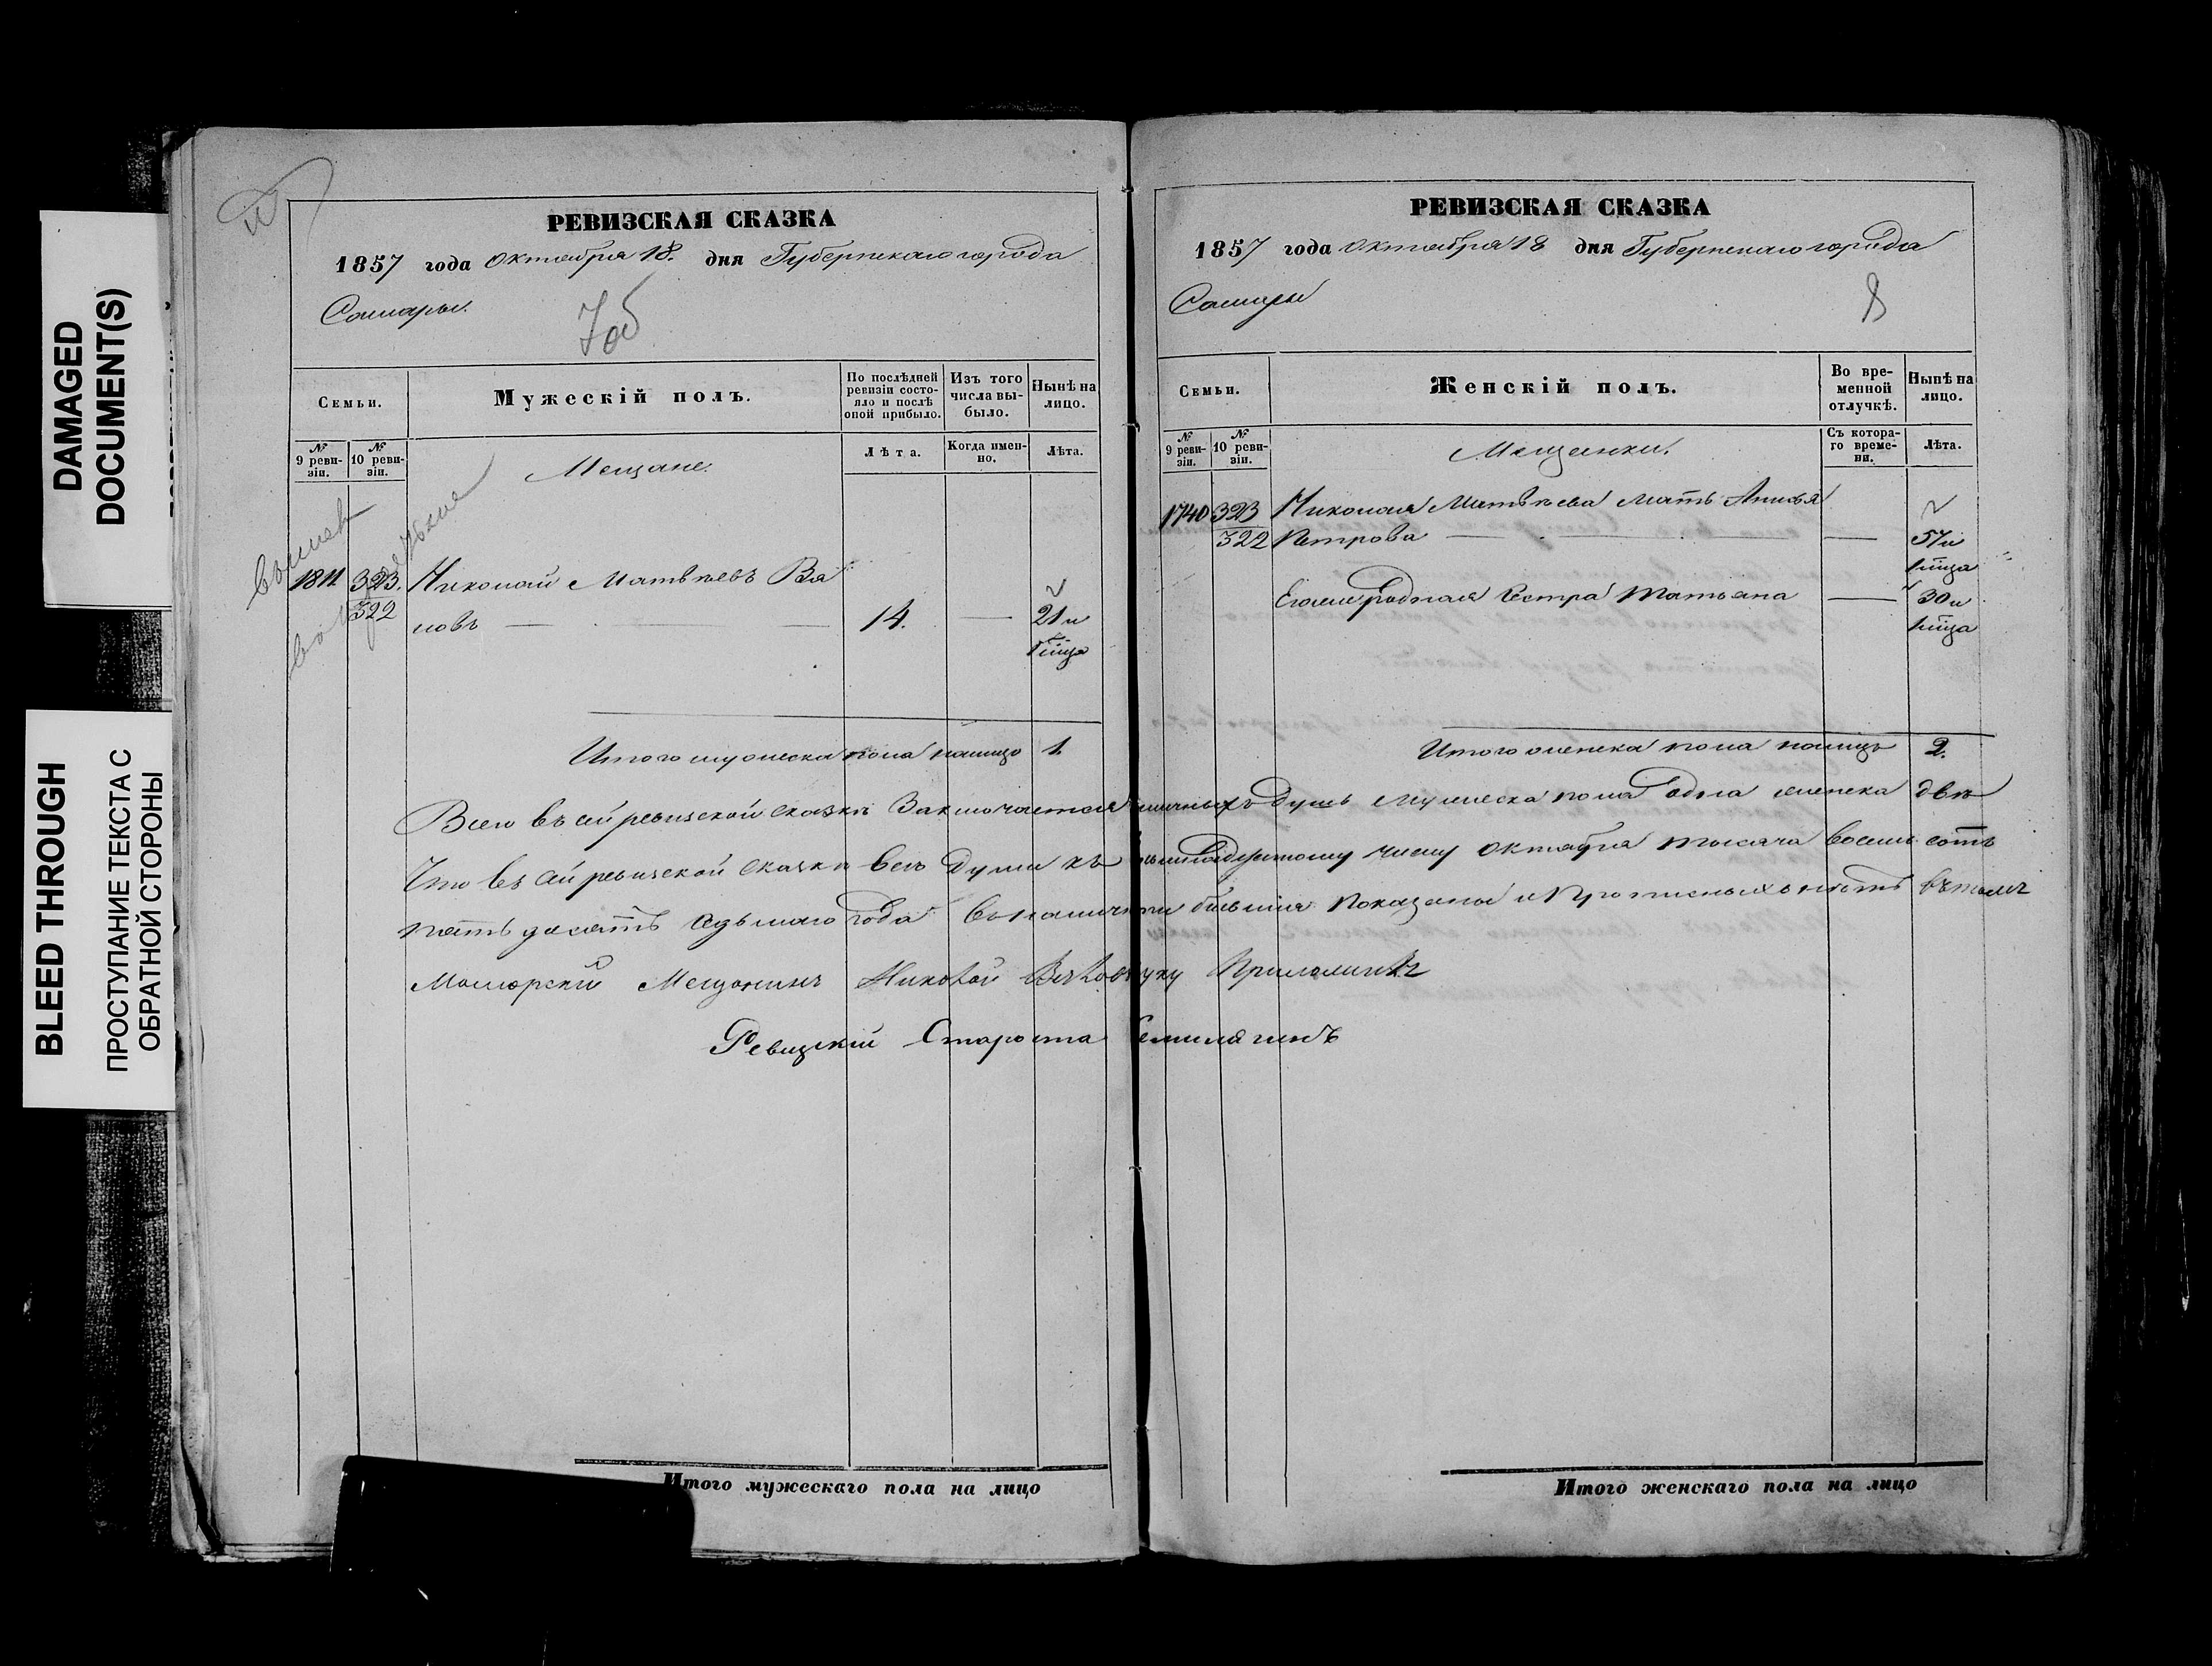 DAMAGED
DOCUMENT(S)
BLEED THROUGH
ПРОСТУПАНИЕ ТЕКСТА С
ОБРАТНОЙ СТОРОНЫ
РЕВИЗСКАЯ СКАЗКА
1857 года Октября 18. дня Губернскаго города
Самары.
7об
Семьи.
Мужескій полъ.
По послѣдней ревизіи состояло и послѣ оной прибыло.
Изъ того числа выбыло.
Нынѣ на лицо.
№ 9 ревизіи.
№ 10 ревизіи.
Мещане.
Лѣта.
Когда именно.
Лѣта.
1811 323. Николай Матвѣевъ Вя
322 ловъ 14. 21 и
Итого мужеска пола налицо 1.
Итого мужескаго пола на лицо
РЕВИЗСКАЯ СКАЗКА
1857 года Октября 18 дня Губернскаго города
Самары
8
Семьи.
Женскій полъ.
Во временной отлучкѣ.
Нынѣ на лицо.
№ 9 ревизіи.
№ 10 ревизіи.
Мещанки.
Съ котораго времени.
Лѣта.
1740 323 Николая Матвѣева мать Анисья
322 Петрова 57 и
Его же родная сестра Татьяна 30 и
Итого женска пола налицо 2.
Всего въ сей ревизской сказкѣ заключается наличныхъ душъ мужеска пола одна женска двѣ
Что въ сей ревизской сказкѣ всѣ души къ осьмнадцатому числу Октября тысяча восемь сотъ
пять десятъ седьмаго года въ наличности бывшія показаны и прописныхъ нѣтъ въ томъ
Самарскій Мещанинъ Николай Вяловъ руку приложилъ
Ревизскій Староста
Итого женскаго пола на лицо